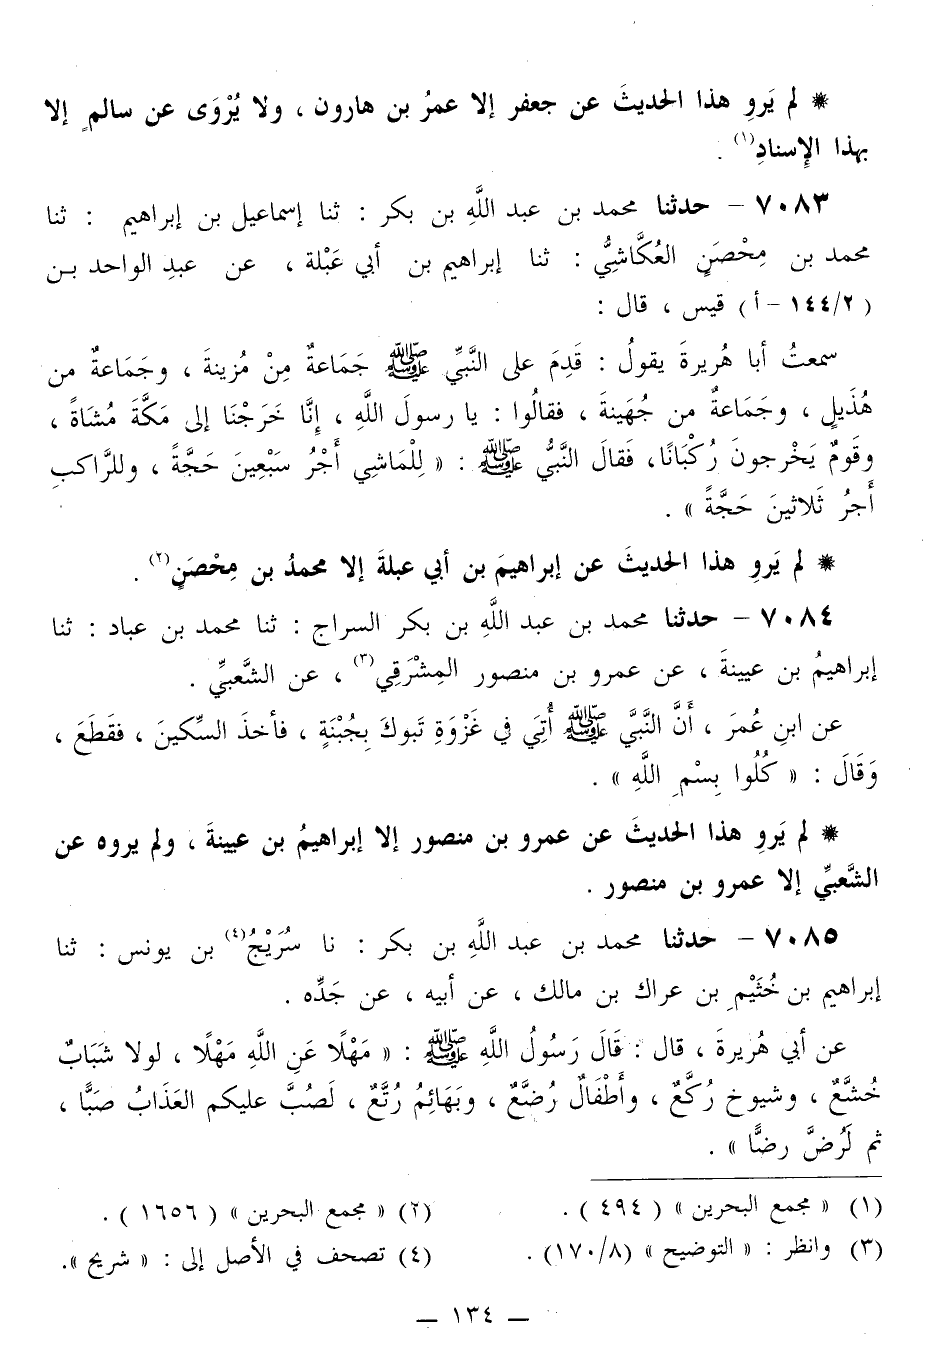 * لم يَروِ هذا الحديثَ عن جعفر إلا عمرُ بن هارون ، ولا يُرْوَى عن سالمٍ إلا
بهذا الإسنادِ(١) .
٧٠٨٣ – حدثنا محمد بن عبد اللَّهِ بن بكر : ثنا إسماعيل بن إبراهيم : ثنا
محمد بن مِحْصَنٍ العُكَّاشِيُّ : ثنا إبراهيم بن أبي عَبْلة ، عن عبدِ الواحد بـن
( ١٤٤/٢ – أ ) قيس ، قال :
سمعتُ أبا هُريرةَ يقولُ : قَدِمَ على النَّبيِّ ﷺ جَمَاعةٌ مِنْ مُزينةَ ، وجَمَاعةٌ من
هُذَيلٍ ، وجَمَاعةٌ من جُهَينةَ ، فقالُوا : يا رسولَ اللَّهِ ، إِنَّا خَرَجْنَا إلى مَكَّةَ مُشَاةً ،
وقَومٌ يَخْرجونَ رُكْبَانًا، فَقالَ النَّبيُّ ﷺ : « لِلْمَاشِي أَجْرُ سَبْعِينَ حَجَّةً ، وللرَّاكبِ
أَجرُ ثَلاثينَ حَجَّةً » .
* لم يَروِ هذا الحديثَ عن إبراهيمَ بن أبي عبلةَ إلا محمدُ بن مِحْصَنٍ(٢) .
٧٠٨٤ – حدثنا محمد بن عبد اللَّهِ بن بكر السراج : ثنا محمد بن عباد : ثنا
إبراهيمُ بن عيينةَ ، عن عمرو بن منصور المِشْرَقِي(٣) ، عن الشَّعبيِّ .
عن ابنِ عُمرَ ، أَنَّ النَّبيَّ ﷺ أُتِيَ في غَزْوَةِ تَبوكَ بِجُبْنَةٍ ، فأخذَ السِّكينَ ، فقَطَعَ ،
وَقَالَ : « كُلُوا بِسْمِ اللَّهِ » .
* لم يَروِ هذا الحديثَ عن عمرو بن منصور إلا إبراهيمُ بن عيينةَ ، ولم يروه عن
الشَّعبيِّ إلا عمرو بن منصور .
٧٠٨٥ – حدثنا محمد بن عبد اللَّهِ بن بكر : نا سُرَيْجُ(٤) بن يونس : ثنا
إبراهيم بن خُثَيْمِ بن عراك بن مالك ، عن أبيه ، عن جَدِّه .
عن أبي هُريرةَ ، قال : قَالَ رَسولُ اللَّهِ ﷺ : « مَهْلًا عَنِ اللَّهِ مَهْلًا ، لولا شَبَابٌ
خُشَّعٌ ، وشيوخ رُكَّعٌ ، وأَطْفَالٌ رُضَّعٌ ، وبَهَائِمُ رُتَّعٌ ، لَصُبَّ عليكم العَذَابُ صَبًّا ،
ثم لَرُضَّ رضًّا » .
(١) « مجمع البحرين » ( ٤٩٤ ) .
(٢) « مجمع البحرين » ( ١٦٥٦ ) .
(٣) وانظر : « التوضيح » (١٧٠/٨) .
(٤) تصحف في الأصل إلى : « شريح ».
— ١٣٤ —